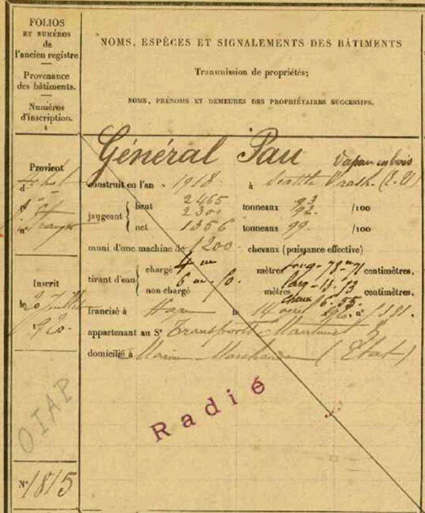 FOLIOS
ET NUMÉROS
de
l'ancien registre
Provenance
des bâtiments.
Numéros
d'inscription.
1
NOMS, ESPÈCES ET SIGNALEMENTS DES BÂTIMENTS
Transmission de propriétés;
NOMS, PRÉNOMS ET DEMEURES DES PROPRIÉTAIRES SUCCESSIFS.
Général Pau Vapeur en bois
Provient
d
construit en l'an 1918 à Seattle Wash. (E. U)
jaugeant brut 2465 tonneaux 93 /100
2300 92
net 1356 tonneaux 99 /100
muni d'une machine de 1200 chevaux (puissance effective)
tirant d'eau chargé mètres long - 78 - 71 centimètres.
non chargé 6 m. 50 mètres larg - 13 - 13 centimètres.
creux
Inscrit
le 20
francisé à le 14 n° 1891
appartenant au Sr Transports Maritimes
domicilié à Marine Marchande (Etat)
Radié
OIAP
N° 1815